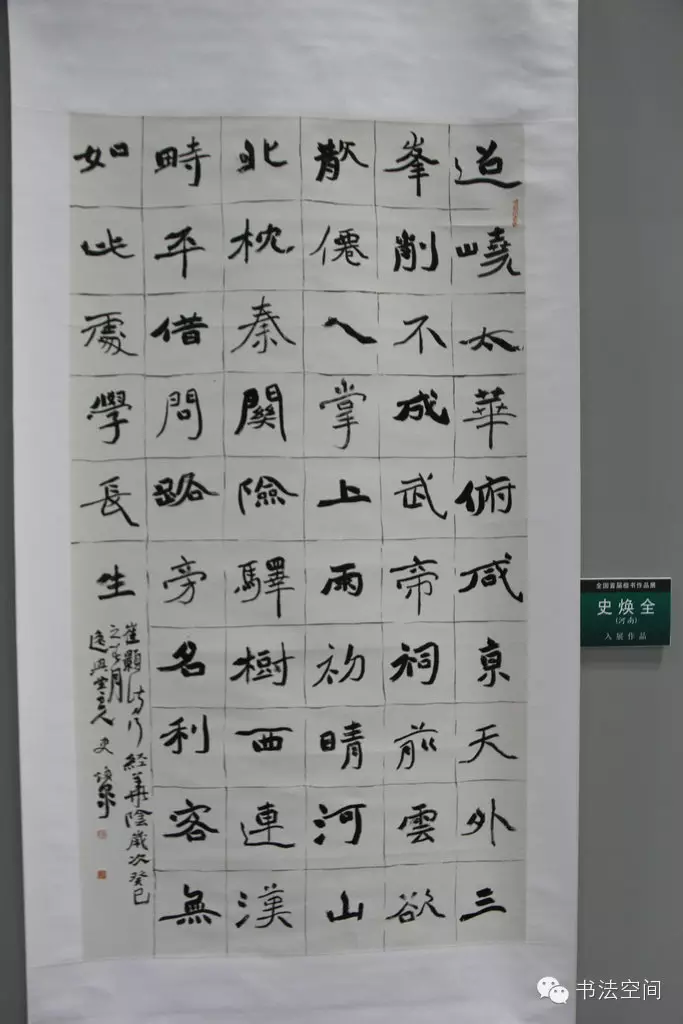 迢嶢太華俯咸京天外三
峯削不成武帝祠前雲欲
散僊人掌上雨初晴河山
北枕秦關險驛樹西連漢
畤平借問路旁名利客無
如此處學長生
崔顥詩行經華陰歲次癸巳
之月
主人史煥全
全国首届楷书作品展
史焕全
(河南)
入展作品
书法空间